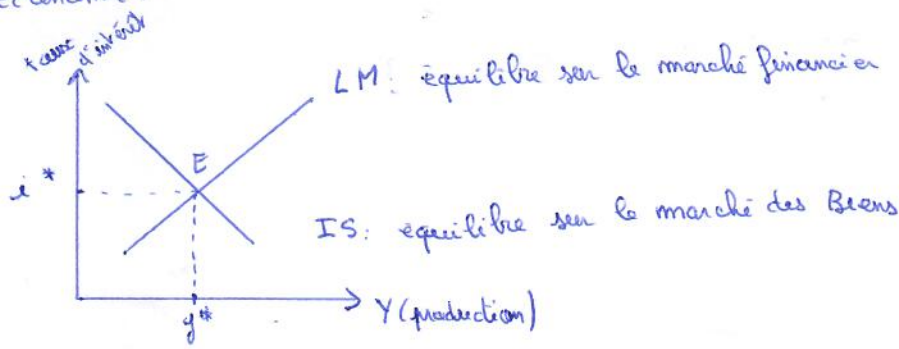 taux
d'intérêt
LM: équilibre sur le marché financier
E
i*
IS: équilibre sur le marché des Biens
Y (production)
y*